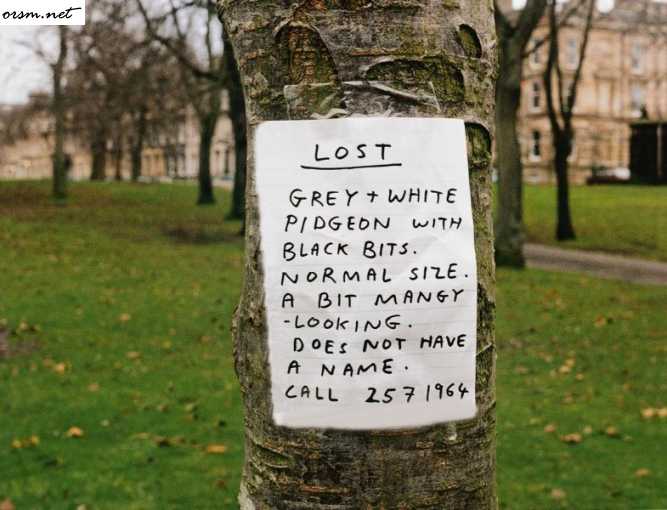 orsm.net
LOST
GREY + WHITE
PIDGEON WITH
BLACK BITS.
NORMAL SIZE.
A BIT MANGY
-LOOKING.
DOES NOT HAVE
A NAME.
CALL 257 1964